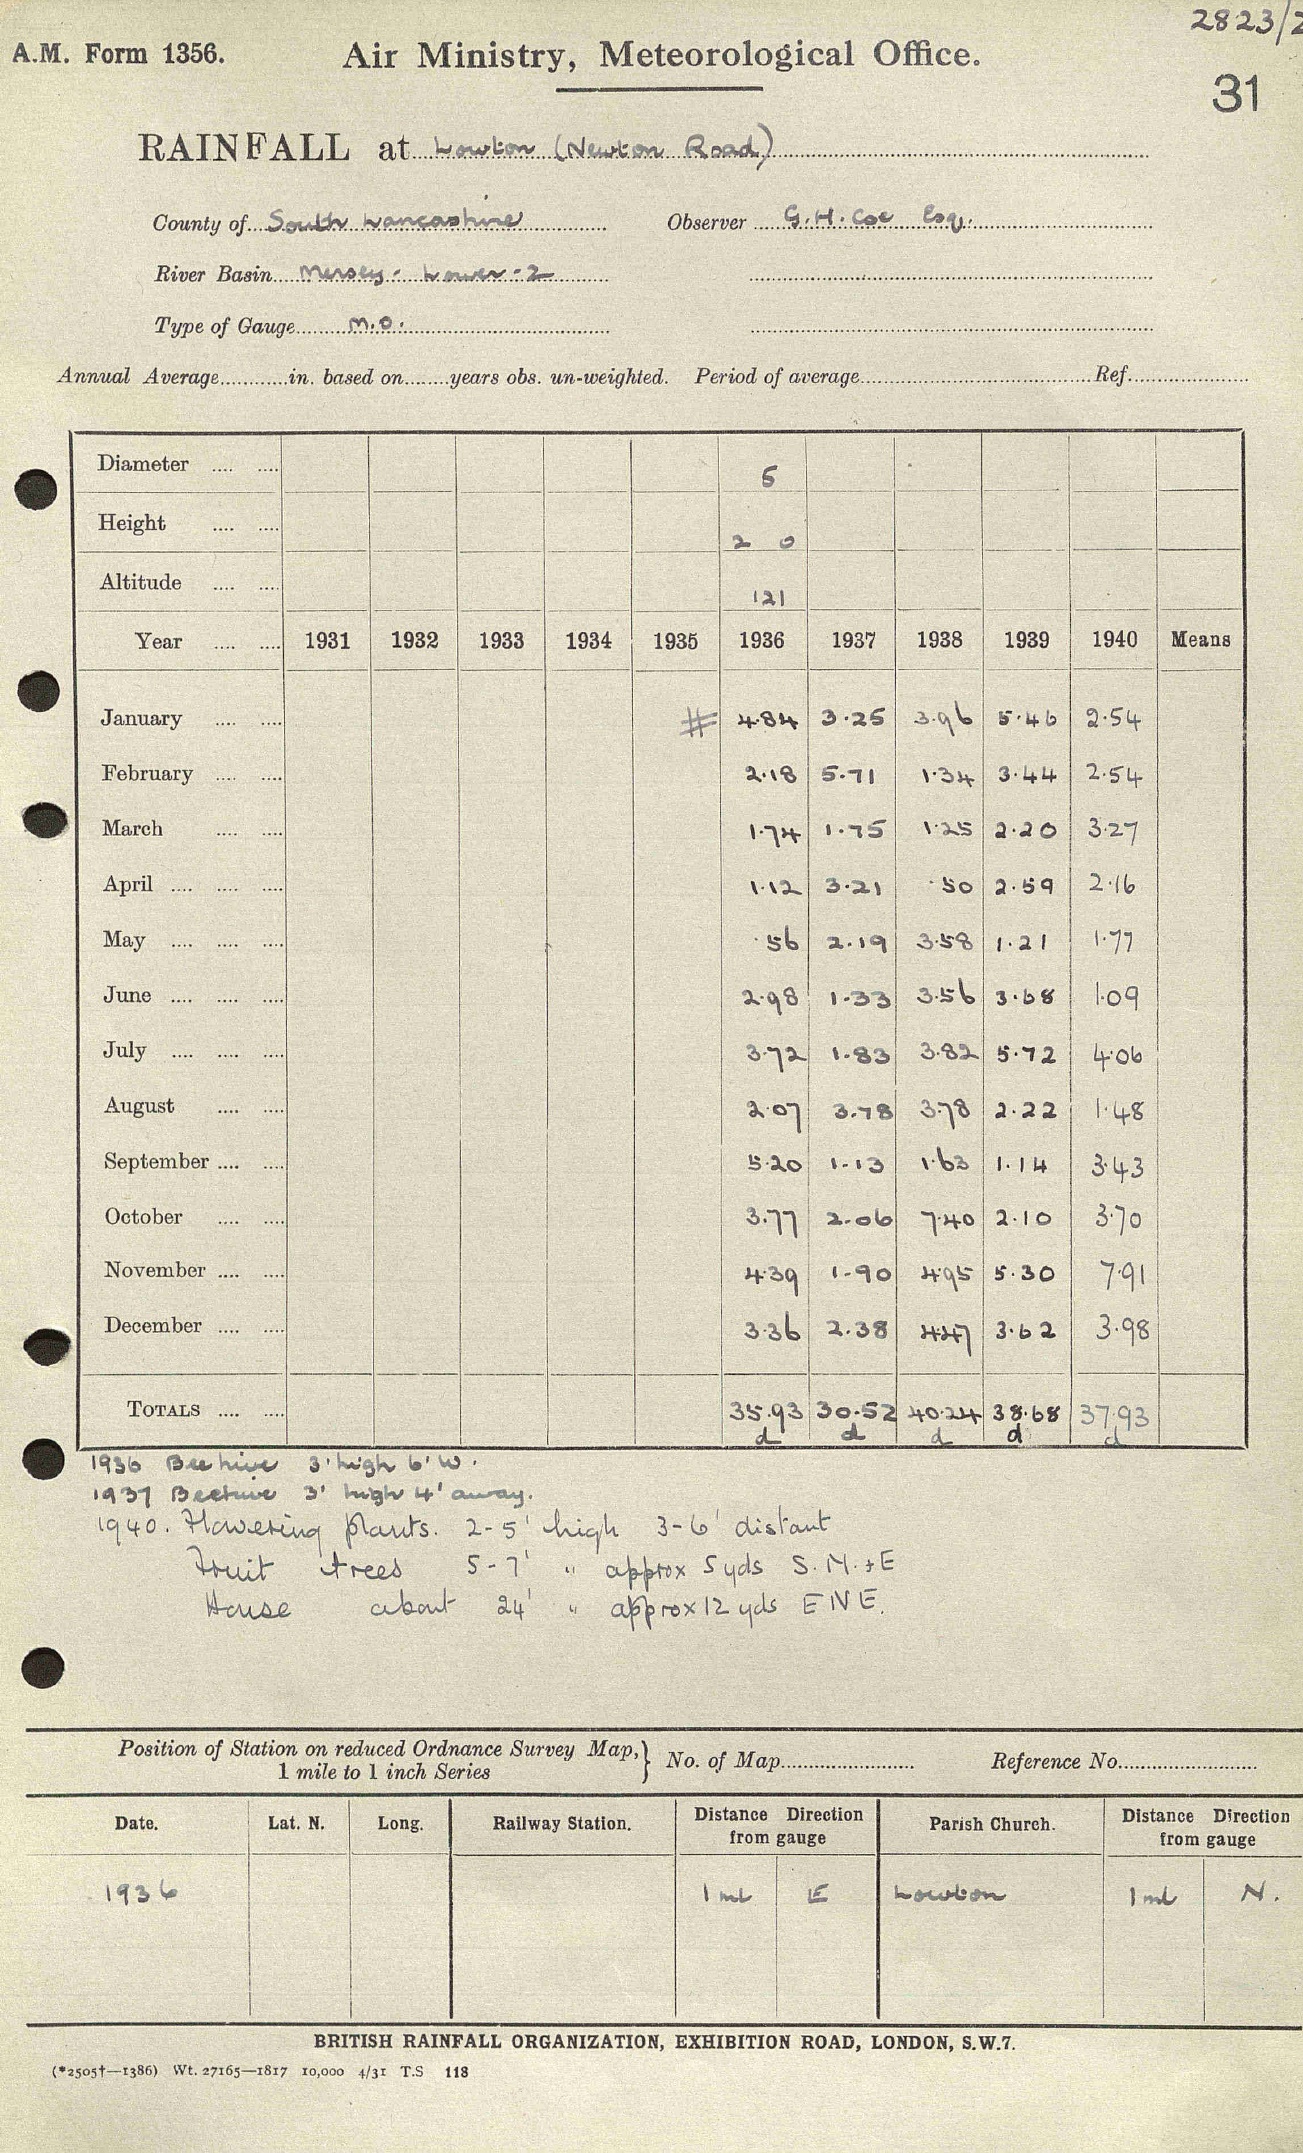 2823/2
A.M. Form 1356. Air Ministry, Meteorological Office.
31
RAINFALL at Lowton (Newton Road)
County of South Lancashire Observer G.H. Coe Esq.
River Basin Mersey - Lower - 2
Type of Gauge M.O.
Annual Average............in. based on........years obs. un-weighted. Period of average............Ref............
Diameter .... .... 5
Height .... .... 2 0
Altitude .... .... 121
Year .... .... 1931 1932 1933 1934 1935 1936 1937 1938 1939 1940 Means
January .... .... # 4.84 3.25 3.96 5.46 2.54
February .... .... 2.18 5.71 1.34 3.44 2.54
March .... .... 1.74 1.75 1.25 2.20 3.27
April .... .... .... 1.12 3.21 .50 2.59 2.16
May .... .... .... .56 2.19 3.58 1.21 1.77
June .... .... .... 2.98 1.33 3.56 3.68 1.09
July .... .... .... 3.72 1.83 3.82 5.72 4.06
August .... .... 2.07 3.78 3.78 2.22 1.48
September .... .... 5.20 1.13 1.63 1.14 3.43
October .... .... 3.77 2.06 7.40 2.10 3.70
November .... .... 4.39 1.90 4.95 5.30 7.91
December .... .... 3.36 2.38 4.47 3.62 3.98
TOTALS .... .... 35.93 30.52 40.24 38.68 37.93
d d d d d
1936 Beehive 3' high 6' W.
1937 Beehive 3' high 4' away.
1940. Flowering plants. 2-5' high 3-6' distant
Fruit trees 5-7' " approx 5 yds S.W.+E
House about 24' " approx 12 yds ENE.
Position of Station on reduced Ordnance Survey Map, } No. of Map............ Reference No............
1 mile to 1 inch Series
Date. Lat. N. Long. Railway Station. Distance Direction from gauge Parish Church. Distance Direction from gauge
1936 1 ml E Lowton 1 ml N.
BRITISH RAINFALL ORGANIZATION, EXHIBITION ROAD, LONDON, S.W.7.
(*2505†—1386) Wt. 27165—1817 10,000 4/31 T.S 118